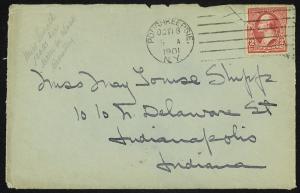 POUGHKEEPSIE
OCT 18
A
1901
N.Y.
2
Miss May Louise Shipp
1010 N. Delaware St
Indianapolis
Indiana